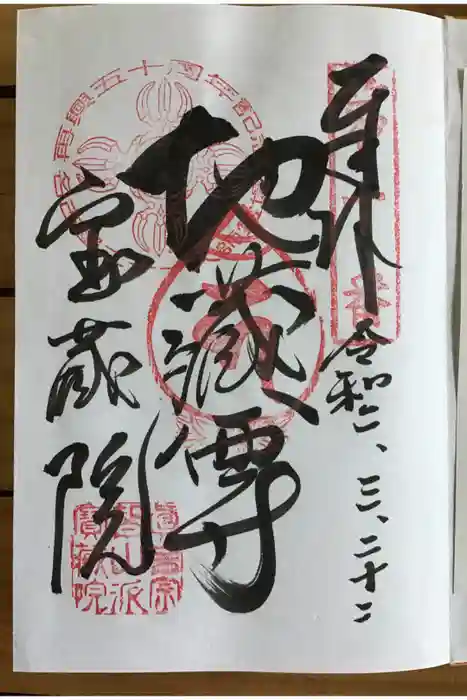 奉拝
令和六、三、二十二
地蔵尊
宝蔵院
再興五十周年記念
真言宗
智山派
寶蔵院